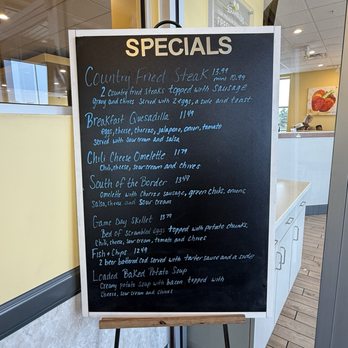 SPECIALS
Country Fried Steak 13.99
mini 10.99
2 country fried steaks topped with sausage
gravy and chives served with 2 eggs, a side and toast
Breakfast Quesadilla 1179
eggs, cheese, chorizo, jalapeno, onion, tomato
served with sour cream and salsa
Chili Cheese Omelette 1179
Chili, cheese, sour cream and chives
South of the Border 1349
Omelette with chorizo sausage, green chili, onions
Salsa, cheese and sour cream
Game Day Skillet 1379
Bed of scrambled eggs topped with potato chunks
Chili, cheese, sour cream, tomato and chives
Fish & Chips 1249
2 beer battered cod served with tarter sauce and a side
Loaded Baked Potato Soup
Creamy potato soup with bacon topped with
Cheese, sour cream and chives